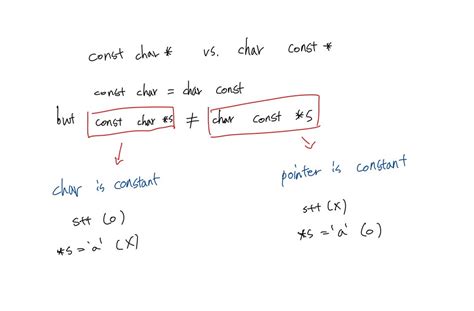 const char * vs. char const *
const char = char const
but const char *s ≠ char const *s
char is constant
s++ (o)
*s = 'a' (X)
pointer is constant
s++ (X)
*s = 'a' (o)